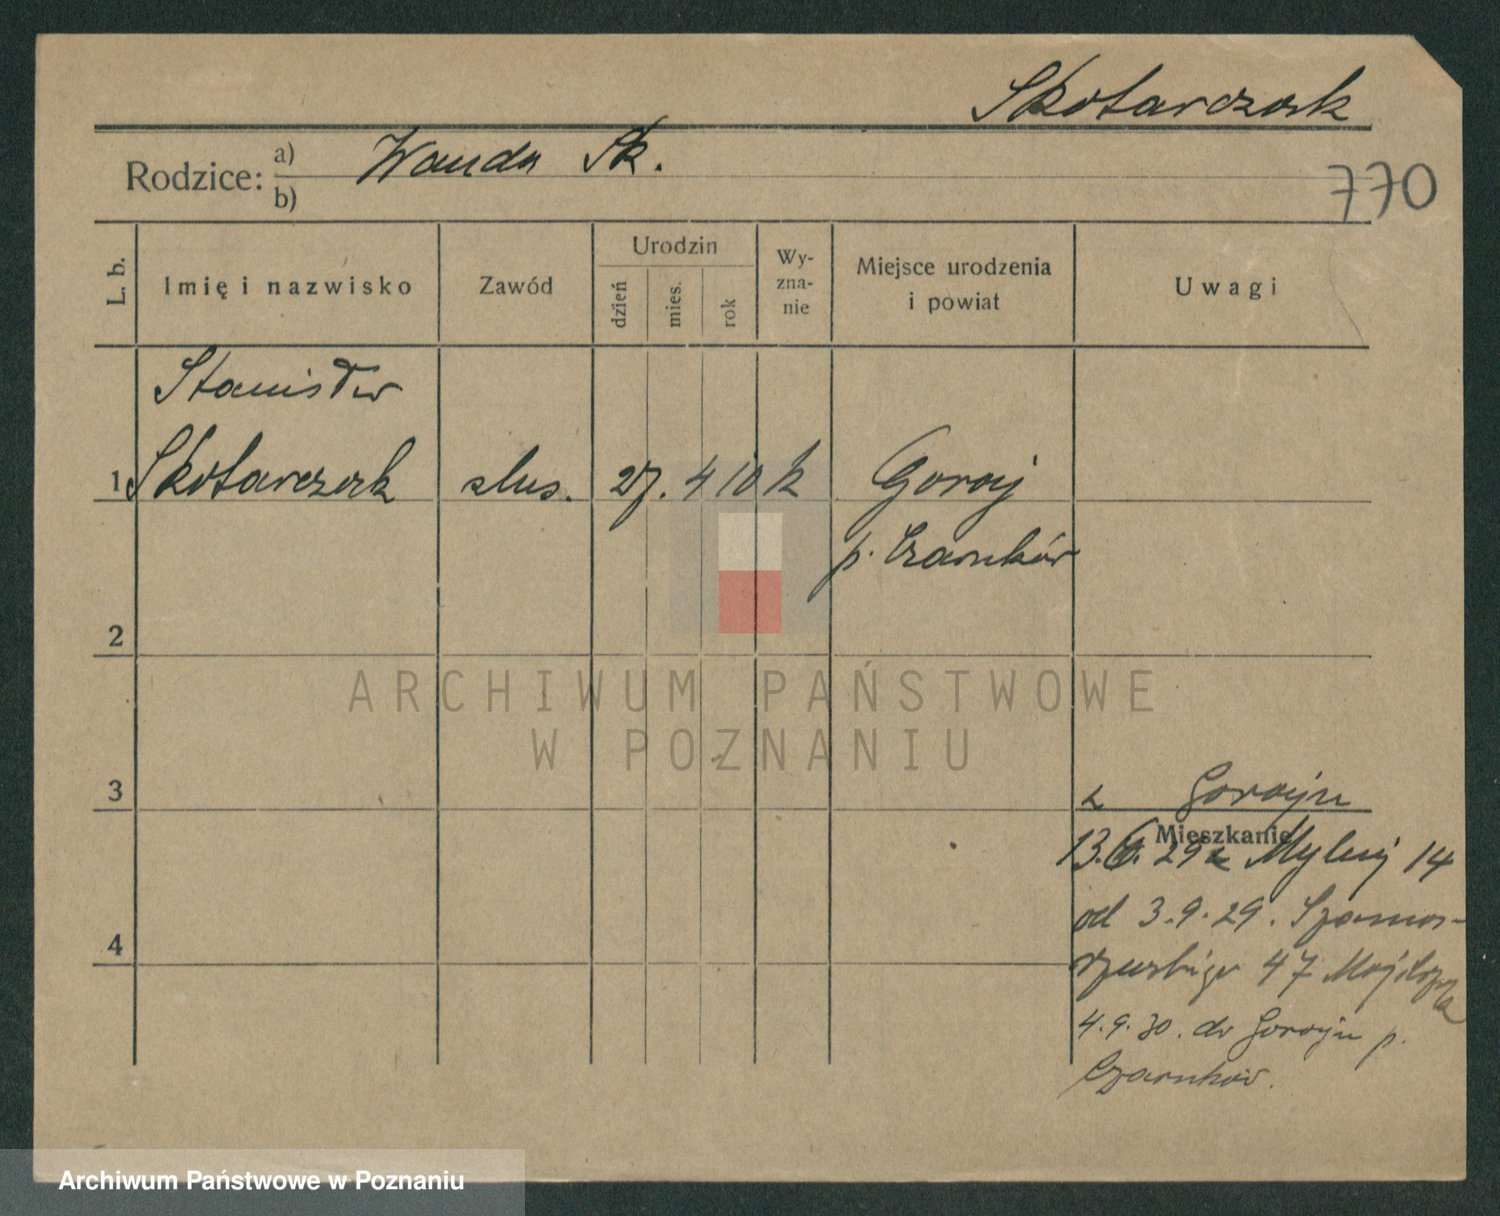 Skotarczak
Rodzice: a) Wanda Sk.
b)
770
L. b.
Imię i nazwisko
Zawód
Urodzin
dzień
mies.
rok
Wy-
zna-
nie
Miejsce urodzenia
i powiat
Uwagi
Stanisław
1 Skotarczak slus. 27. 4 10 k Goraj
p. Czarnków
2
ARCHIWUM PAŃSTWOWE
W POZNANIU
3
z Goraju
Mieszkanie
13.6.29 z Mylnej 14
od 3.9.29. Szamo-
rzewskiego 47
4
4.9.30. do Goraju p.
Czarnków.
Archiwum Państwowe w Poznaniu